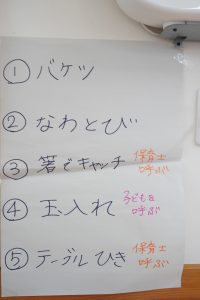 ① バケツ
② なわとび
③ 箸でキャッチ 保育士
呼ぶ
④ 玉入れ 子どもを
呼ぶ
⑤ テーブルひき 保育士
呼ぶ